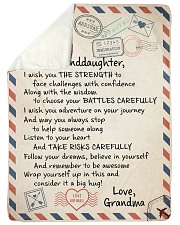 nddaughter,
I wish you THE STRENGTH to
face challenges with confidence
Along with the wisdom
to choose your BATTLES CAREFULLY
I wish you adventure on your journey
And may you always stop
to help someone along
Listen to your heart
And TAKE RISKS CAREFULLY
Follow your dreams, believe in yourself
And remember to be awesome
Wrap yourself up in this and
consider it a big hug!
Love,
Grandma